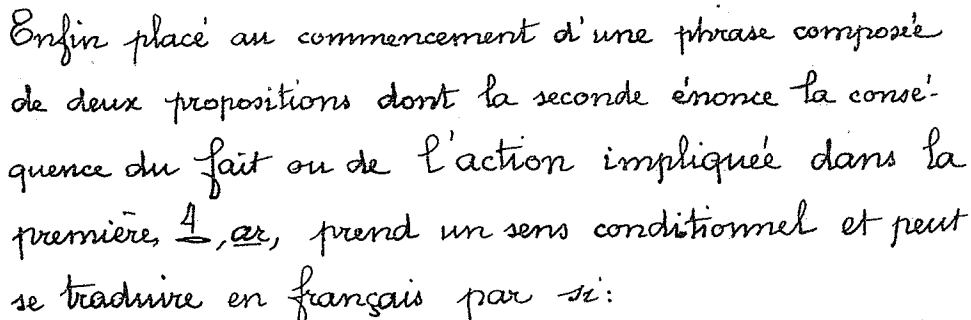 Enfin placé au commencement d'une phrase composée
de deux propositions dont la seconde énonce la consé-
quence du fait ou de l'action impliquée dans la
première, , ar, prend un sens conditionnel et peut
se traduire en français par si: